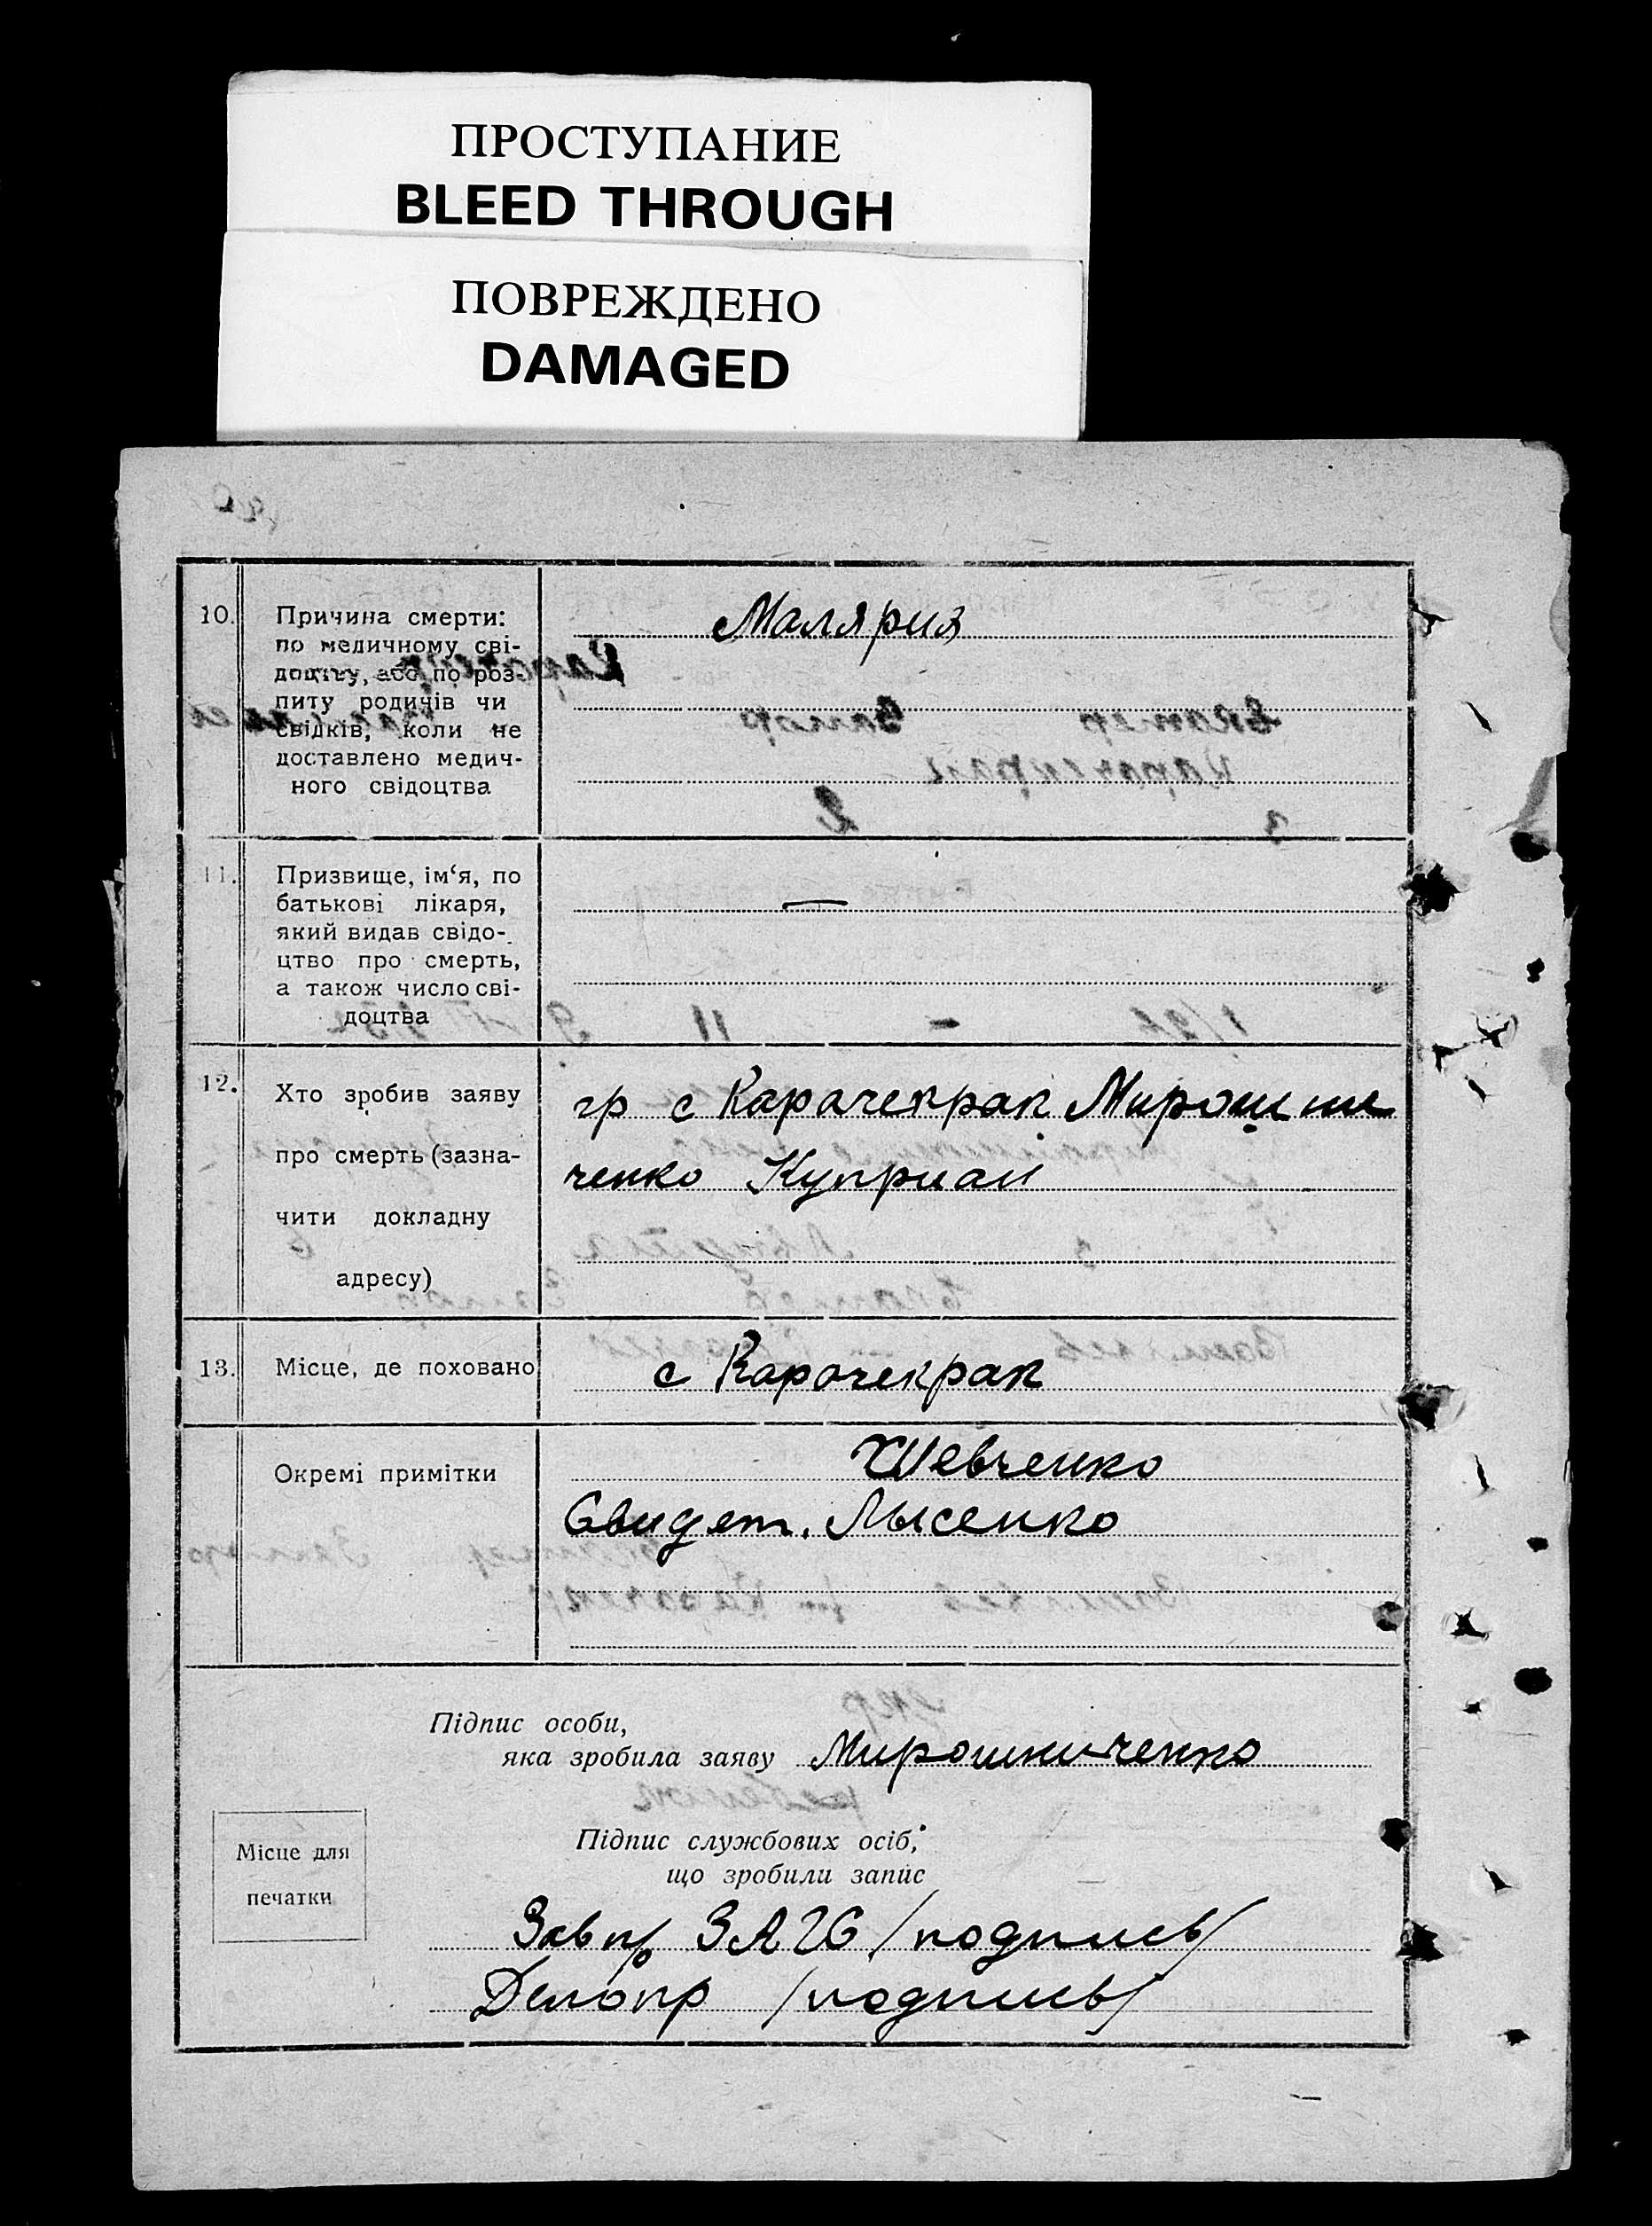 ПРОСТУПАНИЕ
BLEED THROUGH
ПОВРЕЖДЕНО
DAMAGED
10. Причина смерти:
по медичному сві-
доцтву, або по роз-
питу родичів чи
свідків, коли не
доставлено медич-
ного свідоцтва
Малярия
11. Призвище, ім‘я, по
батькові лікаря,
який видав свідо-
цтво про смерть,
а також число сві-
доцтва
—
12. Хто зробив заяву
про смерть (зазна-
чити докладну
адресу)
гр с Карачекрак Мирошни
ченко Куприан
13. Місце, де поховано
с Карачекрак
Окремі примітки
Шевченко
Свидет. Лысенко
Підпис особи,
яка зробила заяву Мирошниченко
Місце для
печатки
Підпис службових осіб,
що зробили запис
Завпр ЗАГС /подпись/
Делопр /подпись/